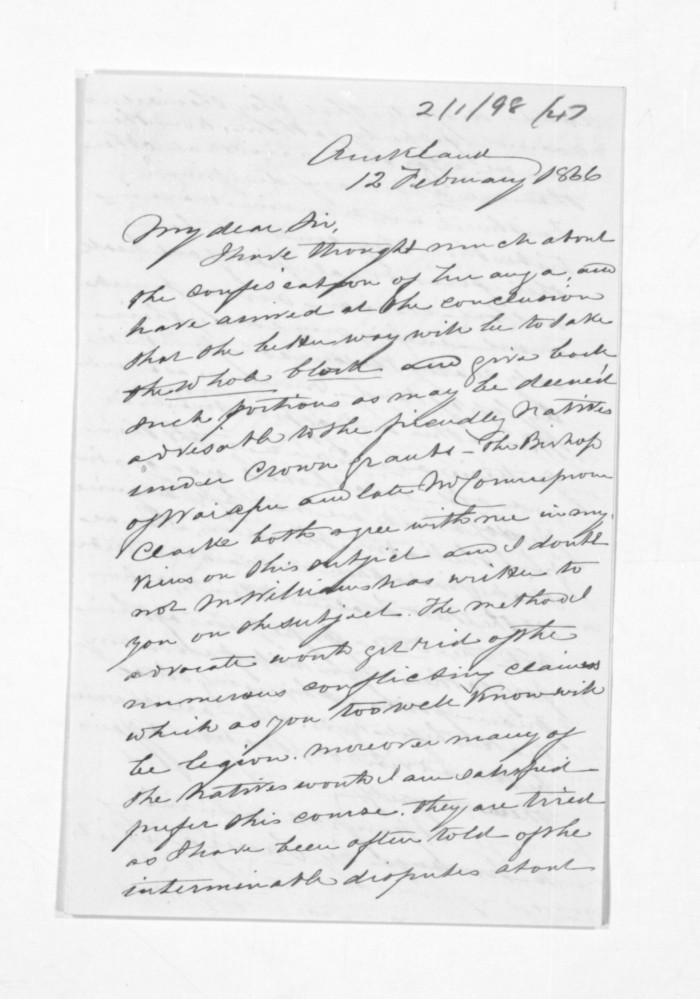 2/1/98/47
Auckland
12 February 1866
My dear Sir,
I have thought much about
the confiscation of Turanga, and
have arrived at the conclusion
that the better way will be to take
the whole block and give back
such portions as may be deemed
advisable to the friendly Natives
under Crown grants – The Bishop
of Waiapu and late Mr Comr
Clarke both agree with me in my
views on this subject and I doubt
not Mr Williams has written to
you on the subject. The method I
advocate would get rid of the
numerous conflicting claims
which as you too well know will
be legion. moreover many of
the Natives would I am satisfied
prefer this course. they are tired
as I have been often told of the
interminable disputes about